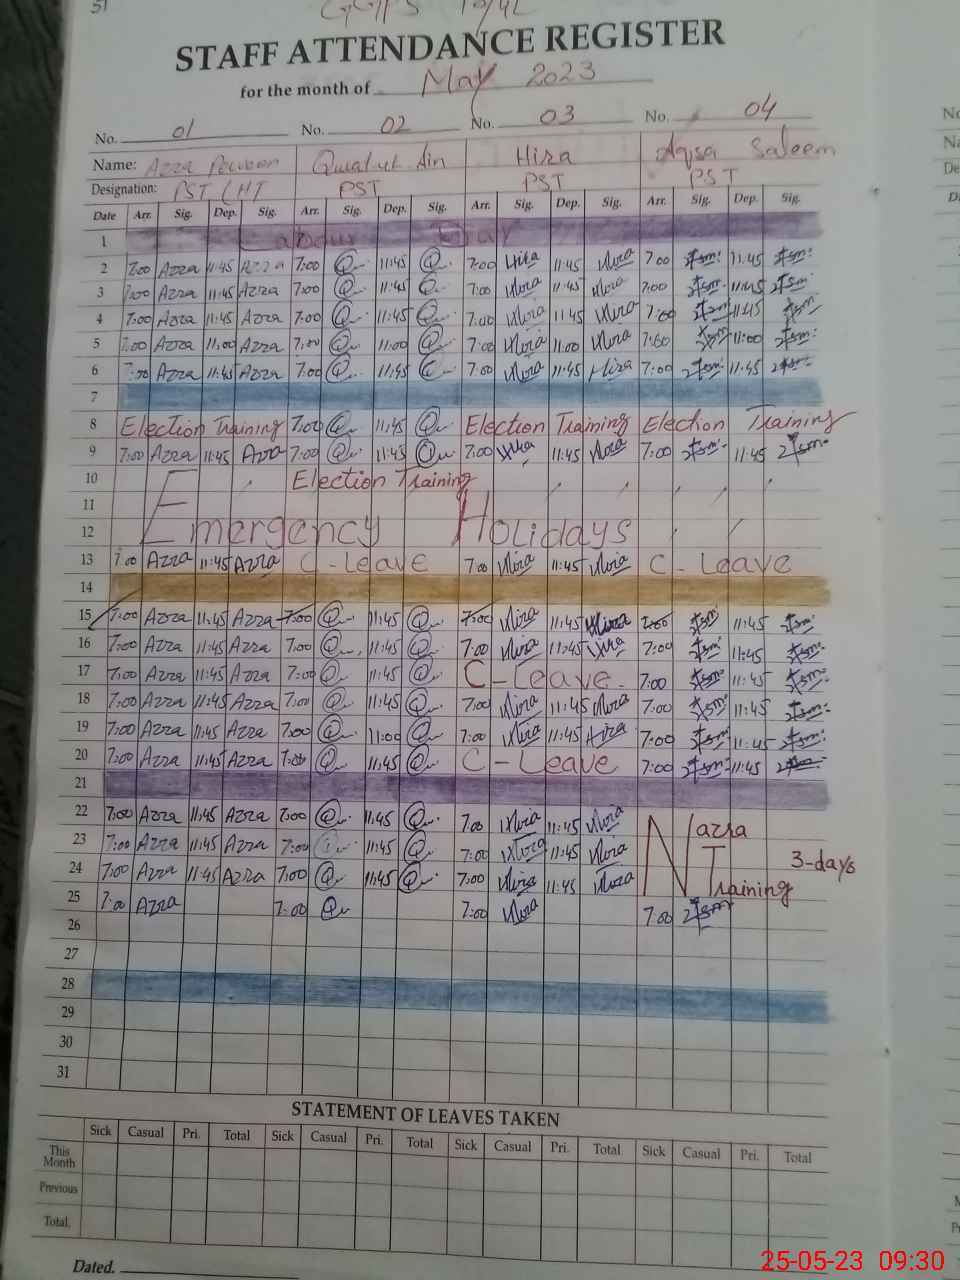 51
STAFF ATTENDANCE REGISTER
for the month of May 2023
No. 01 No. 02 No. 03 No. 04
Name: Azra Parveen Hira Aqsa Saleem
Designation: PST (HT PST PST PST
Date Arr. Sig. Dep. Sig. Arr. Sig. Dep. Sig. Arr Sig. Dep. Sig. Arr. Sig. Dep. Sig.
1 Labour Day
2 7:00 Azra 11:45 Azra 7:00 11:45 7:00 Hira 11:45 Hira 7:00 11:45
3 7:00 Azra 11:45 Azra 7:00 11:45 7:00 Hira 11:45 Hira 7:00 11:45
4 7:00 Azra 11:45 Azra 7:00 11:45 7:00 Hira 11:45 Hira 7:00 11:45
5 7:00 Azra 11:00 Azra 7:00 11:00 7:00 Hira 11:00 Hira 7:00 11:00
6 7:00 Azra 11:45 Azra 7:00 11:45 7:00 Hira 11:45 Hira 7:00 11:45
7
8 Election Training 7:00 11:45 Election Training Election Training
9 7:00 Azra 11:45 Azra 7:00 11:45 7:00 Hira 11:45 Hira 7:00 11:45
10 Election Training
11
12 Emergency Holidays
13 7:00 Azra 11:45 Azra C-Leave 7:00 Hira 11:45 Hira C-Leave
14
15 7:00 Azra 11:45 Azra 7:00 11:45 7:00 Hira 11:45 Hira 7:00 11:45
16 7:00 Azra 11:45 Azra 7:00 11:45 7:00 Hira 11:45 Hira 7:00 11:45
17 7:00 Azra 11:45 Azra 7:00 11:45 C-Leave 7:00 11:45
18 7:00 Azra 11:45 Azra 7:00 11:45 7:00 Hira 11:45 Hira 7:00 11:45
19 7:00 Azra 11:45 Azra 7:00 11:00 7:00 Hira 11:45 Hira 7:00 11:45
20 7:00 Azra 11:45 Azra 7:00 11:45 C-Leave 7:00 11:45
21
22 7:00 Azra 11:45 Azra 7:00 11:45 7:00 Hira 11:45 Hira Nazra
23 7:00 Azra 11:45 Azra 7:00 11:45 7:00 Hira 11:45 Hira 3-days
24 7:00 Azra 11:45 Azra 7:00 11:45 7:00 Hira 11:45 Hira Training
25 7:00 Azra 7:00 7:00 Hira 7:00
26
27
28
29
30
31
STATEMENT OF LEAVES TAKEN
Sick Casual Pri. Total Sick Casual Pri. Total Sick Casual Pri. Total Sick Casual Pri. Total
This Month
Previous
Total.
Dated.
25-05-23 09:30